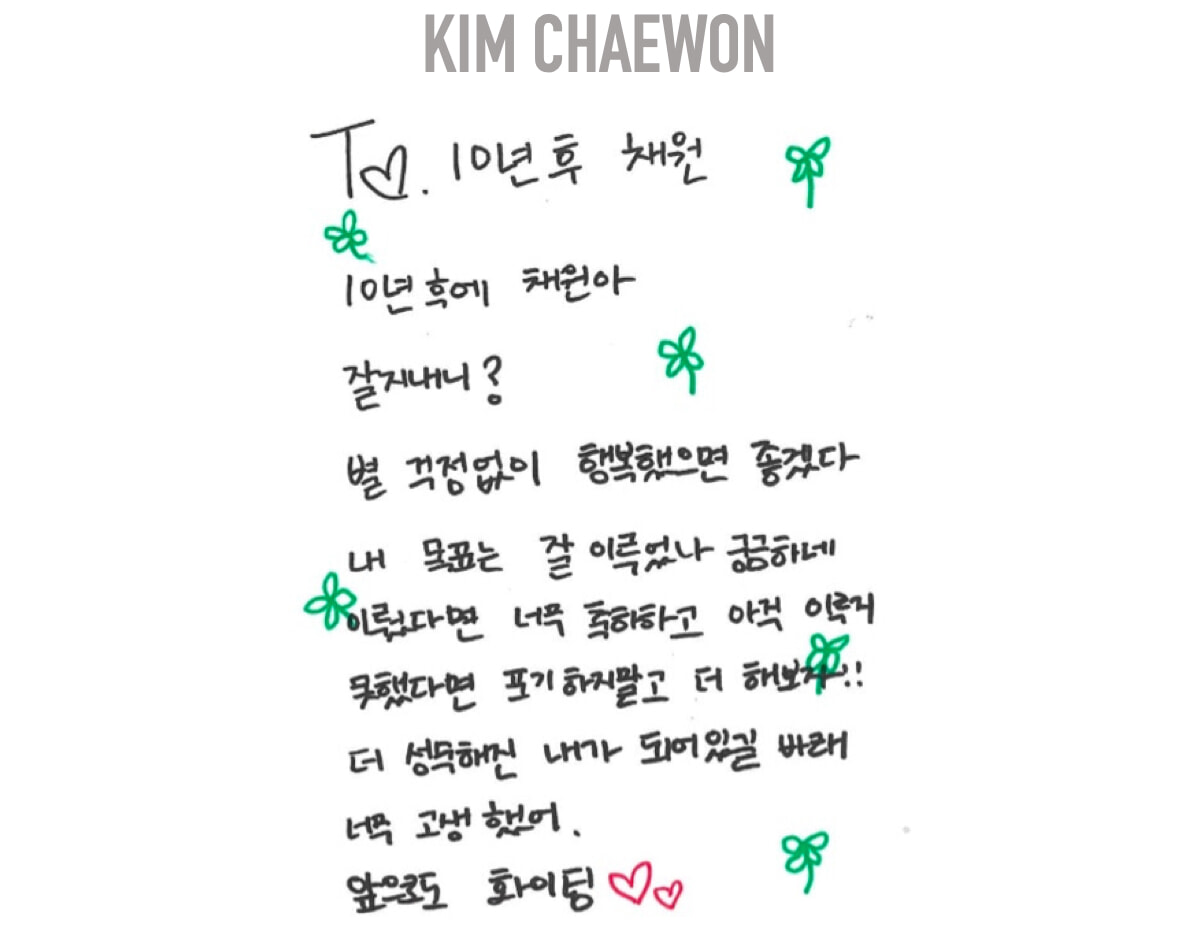 KIM CHAEWON
To. 10년 후 채원
10년 후에 채원아
잘지내니?
별 걱정없이 행복했으면 좋겠다
내 목표는 잘 이루었나 궁금하네
이뤘다면 너무 축하하고 아직 이루지
못했다면 포기하지말고 더 해보자!!
더 성숙해진 내가 되어있길 바래
너무 고생 했어.
앞으로도 화이팅